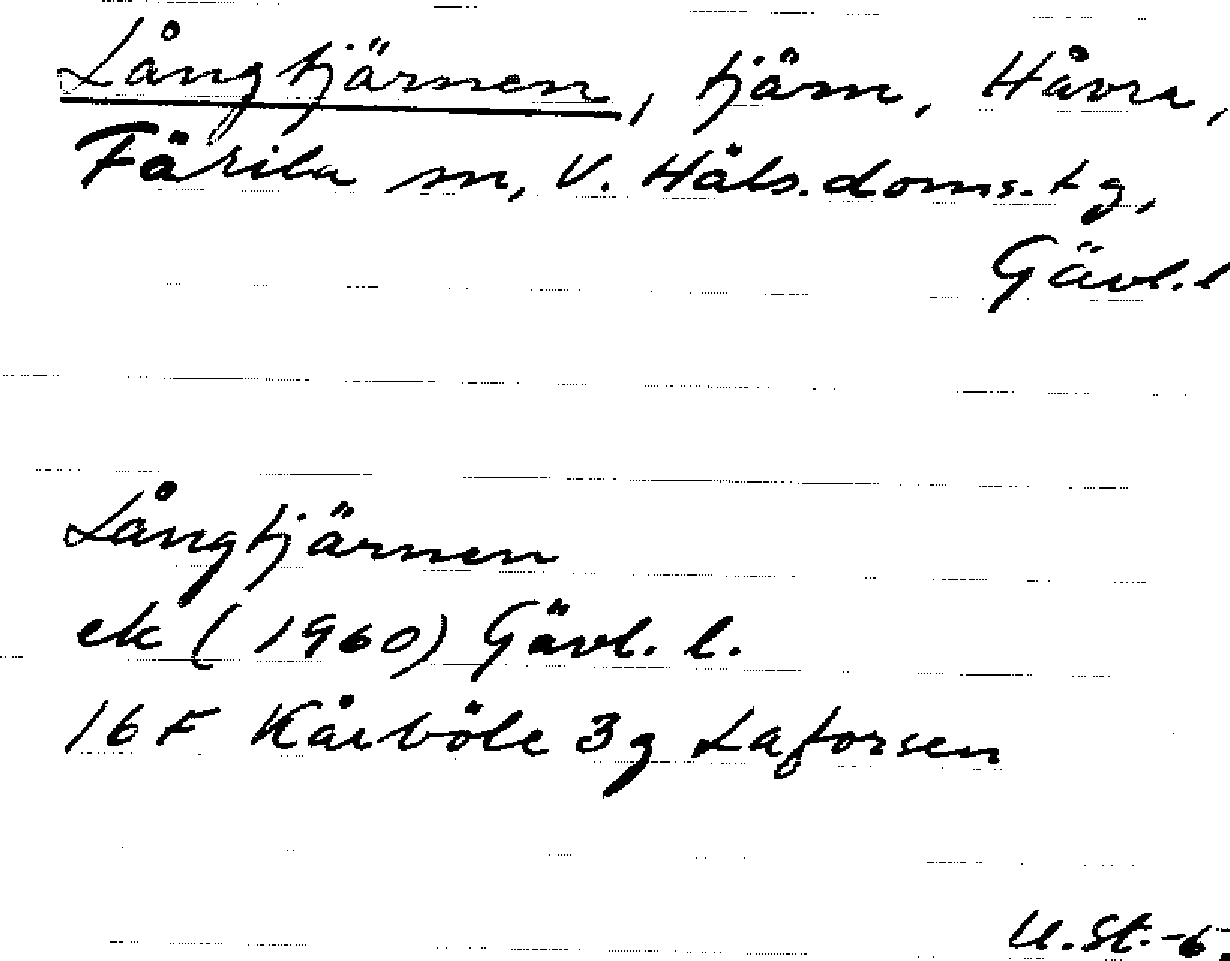 Långtjärnen, tjärn, Håvra,
Färila sn, V. Häls.doms.tg,
Gävl.l
Långtjärnen
ek (1960) Gävl. l.
16 F Kårböle 3g Laforsen
U.St.-6